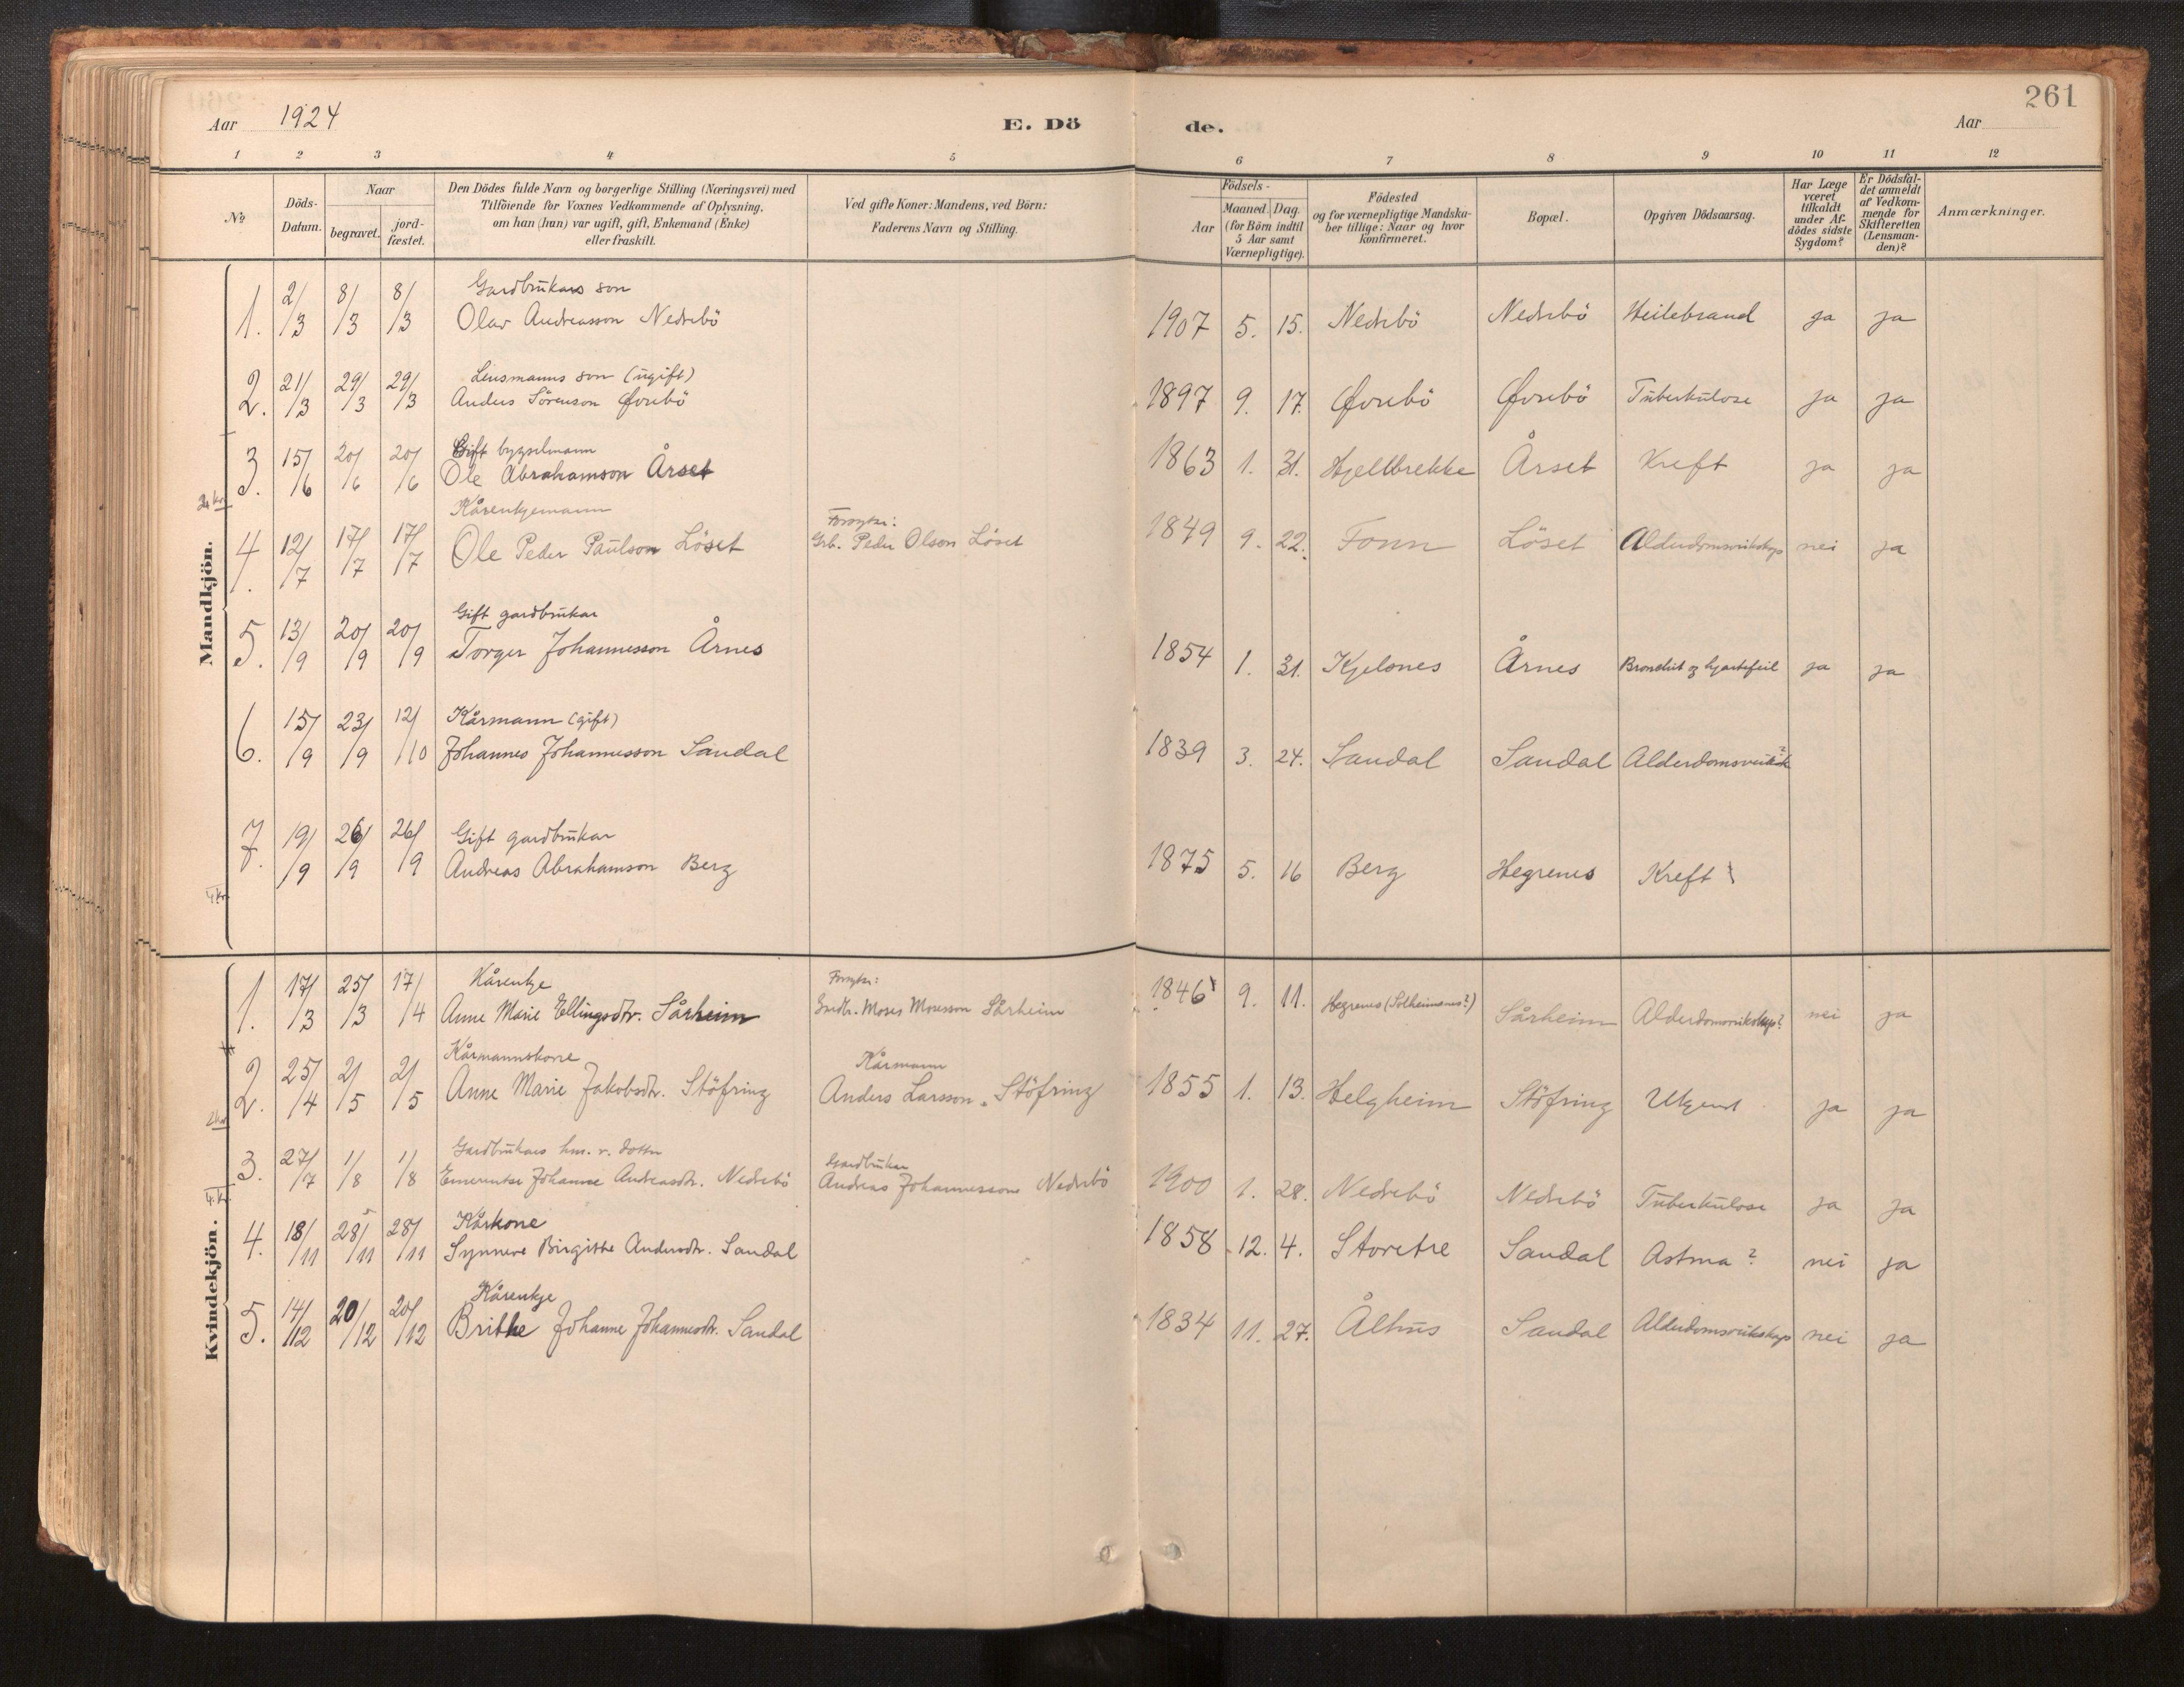 261
Aar 1924
E. Dö
de.
Aar
1 2 3 4 5 6 7 8 9 10 11 12
No
Döds-Datum.
Naar
begravet.
jord-fæstet.
Den Dödes fulde Navn og borgerlige Stilling (Næringsvei) med
Tilföiende for Voxnes Vedkommende af Oplysning,
om han (hun) var ugift, gift, Enkemand (Enke)
eller fraskilt.
Ved gifte Koner: Mandens, ved Börn:
Faderens Navn og Stilling.
Födsels-
Aar
Maaned. Dag.
(for Börn indtil
5 Aar samt
Værnepligtige).
Födested
og for værnepligtige Mandska-
ber tillige: Naar og hvor
konfirmeret.
Bopæl.
Opgiven Dödsaarsag.
Har Læge
været
tilkaldt
under Af-
dödes sidste
Sygdom?
Er Dödsfal-
det anmeldt
af Vedkom-
mende for
Skifteretten
(Lensman-
den)?
Anmærkninger.
Mandkjön.
Gardbrukars son
1. 2/3 8/3 8/3 Olav Andreasson Nedrebö 1907 5. 15. Nedrebö Nedrebö Heilebrand ja ja
Lensmanns son (ugift)
2. 21/3 29/3 29/3 Anders Sörenson Øvrebö 1897 9. 17. Øvrebö Øvrebö Tuberkulose ja ja
Gift bygselmann
3. 15/6 20/6 20/6 Ole Abrahamson Årset 1863 1. 31. Hjellbrekke Årset Kreft ja ja
Kårenkjemann
Forsytar:
4. 12/7 17/7 17/7 Ole Peder Paulson Löset Grb. Peder Olson Löset 1849 9. 22. Fonn Löset Alderdomsveikskap nei ja
Gift gardbrukar
5. 13/9 20/9 20/9 Torger Johannesson Årnes 1854 1. 31. Kjelsnes Årnes Bronchit og hjartefeil ja ja
Kårmann (gift)
6. 15/9 23/9 12/10 Johannes Johannesson Sandal 1839 3. 24. Sandal Sandal
Gift gardbrukar
7. 19/9 26/9 26/9 Andreas Abrahamson Berg 1875 5. 16 Berg Hegrenes Kreft
4 kr.
Kvindekjön.
Kårenkje
Forsytar:
1. 17/3 25/3 17/4 Anne Marie Ellingsdtr. Sårheim Moses Mosesson Sårheim 1846 9. 11. Hegrenes (Solheimsnes?) Sårheim Alderdomsveikskap? nei ja
Kårmannskone
Kårmann
2. 25/4 2/5 2/5 Anne Marie Jakobsdtr. Stöfring Anders Larsson Stöfring 1855 1. 13. Helgheim Stöfring ja ja
Gardbrukars hm. v. dotter
Gardbrukar
3. 27/7 1/8 1/8 Emerentse Johanne Andreasdtr. Nedrebö Andreas Johannessone Nedrebö 1900 1. 28. Nedrebö Nedrebö Tuberkulose ja ja
4. kr.
Kårkone
4. 18/11 28/11 28/11 Synneve Birgitte Andersdtr. Sandal 1858 12. 4. Storetre Sandal Astma? nei ja
Kårenkje
5. 14/12 20/12 20/12 Brithe Johanne Johannesdtr. Sandal 1834 11. 27. Ålhus Sandal Alderdomsveikskap nei ja